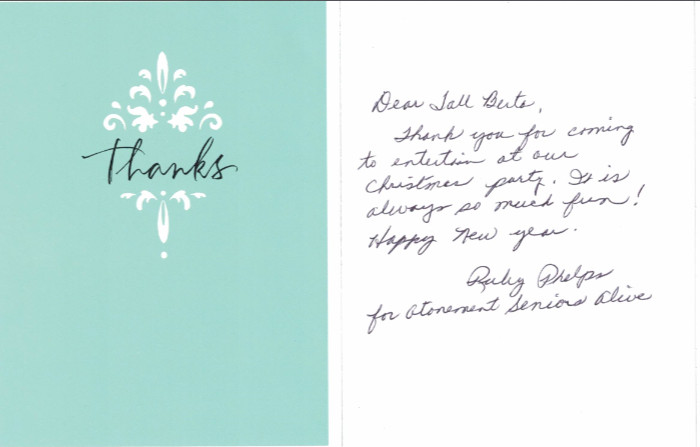 Thanks
Dear Tall Berta,
Thank you for coming
to entertain at our
Christmas party. It is
always so much fun!
Happy New year.
Ruby Phelps
for Atonement Seniors Alive